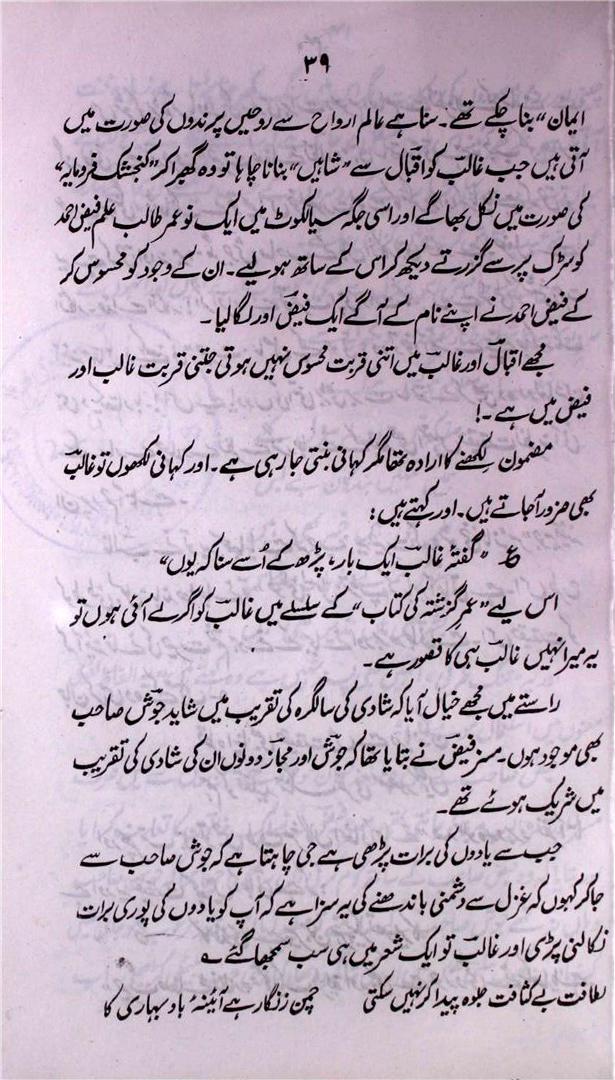 ۳۹
ایمان“ بنا چکے تھے۔ سنا ہے عالم ارواح سے روحیں پرندوں کی صورت میں
آتی ہیں جب غالبؔ کو اقبالؔ سے ”شاہیں“ بنانا چاہا تو وہ گھبرا کر ”کنجشک فرومایہ“
کی صورت میں نکل بھاگے اور اسی جگہ سیالکوٹ میں ایک نو عمر طالب علم فیض احمد
کو سڑک پر سے گزرتے دیکھ کر اس کے ساتھ ہو لیے۔ ان کے وجود کو محسوس کر
کے فیض احمد نے اپنے نام کے آگے ایک فیضؔ اور لگا لیا۔
مجھے اقبالؔ اور غالبؔ میں اتنی قربت محسوس نہیں ہوتی جتنی قربت غالب اور
فیض میں ہے۔!
مضمون لکھنے کا ارادہ تھا مگر کہانی بنتی جا رہی ہے۔ اور کہانی لکھوں تو غالبؔ
بھی ضرور آ جاتے ہیں۔ اور کہتے ہیں:
ع ”گفتۂ غالبؔ ایک بار، پڑھ کے اُسے سنا کہ یوں“
اس لیے ”عمر گزشتہ کی کتاب“ کے سلسلے میں غالبؔ کو اگر لے آئی ہوں تو
یہ میرا نہیں غالبؔ ہی کا قصور ہے۔
راستے میں مجھے خیال آیا کہ شادی کی سالگرہ کی تقریب میں شاید جوشؔ صاحب
بھی موجود ہوں۔ مسز فیضؔ نے بتایا تھا کہ جوشؔ اور مجازؔ دونوں ان کی شادی کی تقریب
میں شریک ہوئے تھے۔
جب سے یادوں کی برات پڑھی ہے جی چاہتا ہے کہ جوش صاحب سے
جا کر کہوں کہ غزل سے دشمنی باندھنے کی یہ سزا ہے کہ آپ کو یادوں کی پوری برات
نکالنی پڑی اور غالبؔ تو ایک شعر میں ہی سب سمجھا گئے ؎
لطافت بے کثافت جلوہ پیدا کر نہیں سکتی چمن زنگار ہے آئینۂ باد بہاری کا